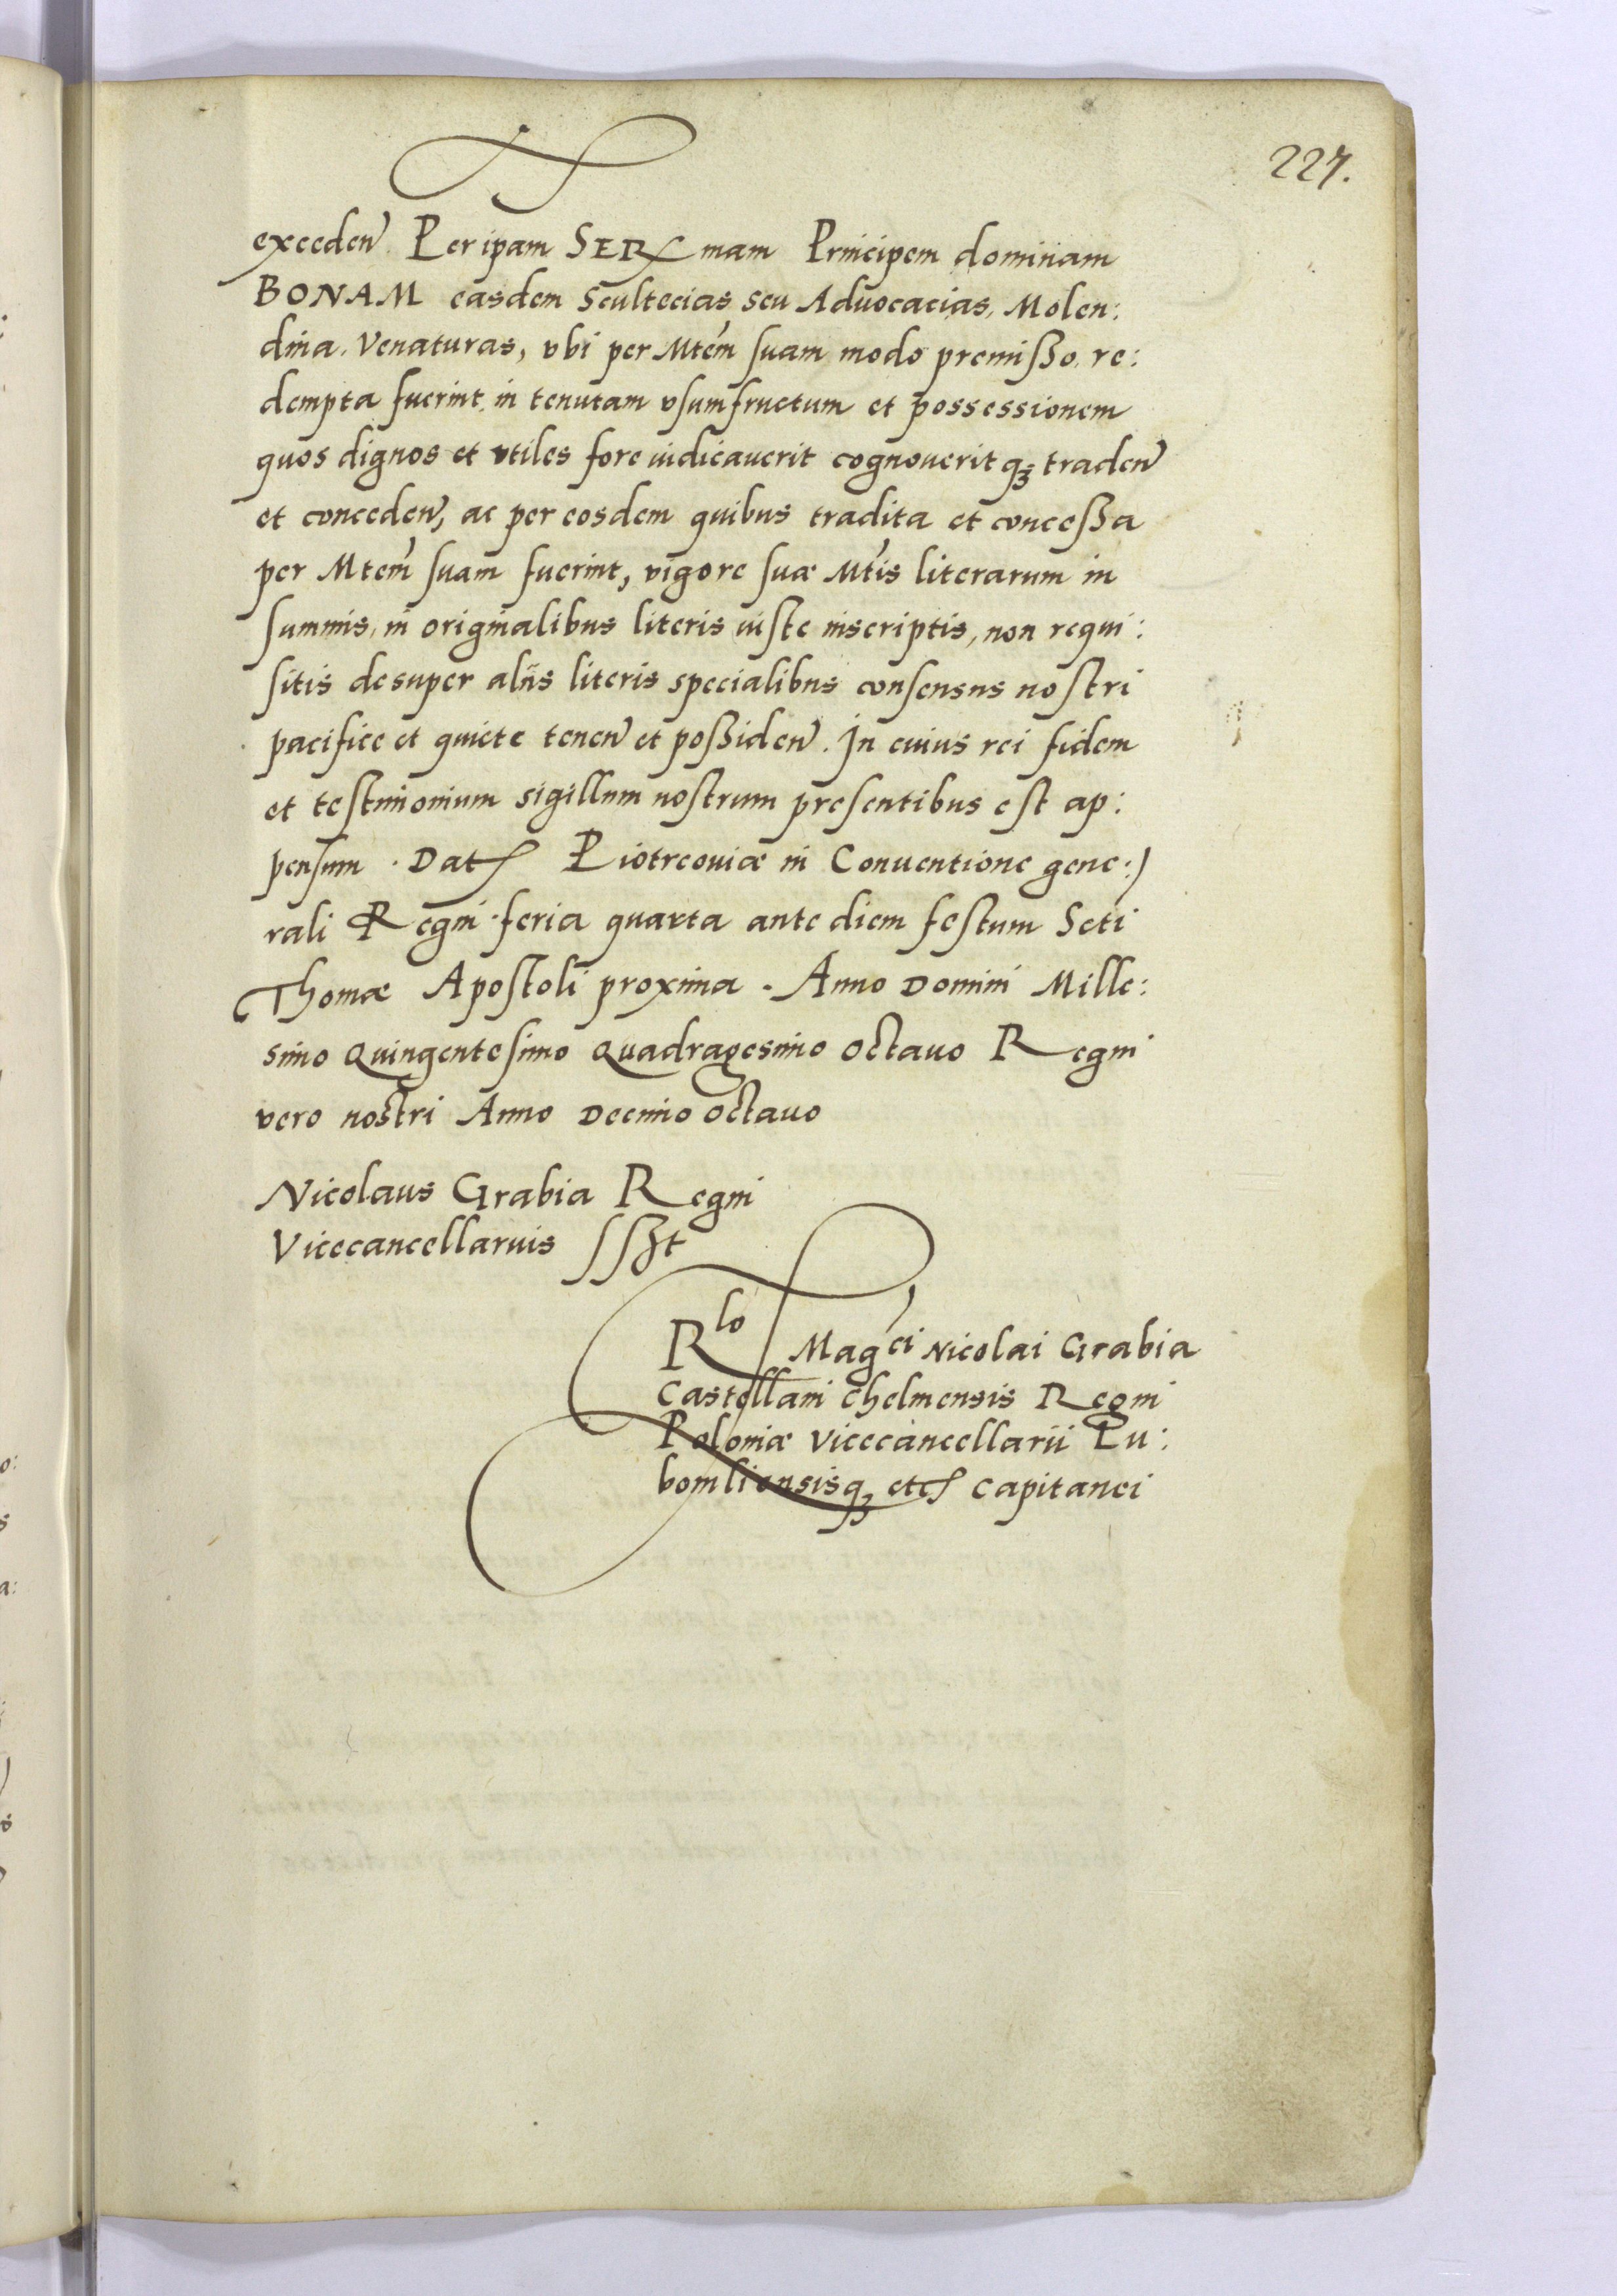 227.
exceden̄ Per ipam SERmam Principem dominam
BONAM easdem Scultecias seu Aduocacias, Molen:
dina, Venaturas, vbi per Mtem̄ suam modo premisso, re:
dempta fuerint, in tenutam vsumfructum et possessionem
quos dignos et vtiles fore iudicauerit cognouerit qꝫ traden̄
et conceden̄, ac per eosdem quibus tradita et concessa
per Mtem̄ suam fuerint, vigore suæ Mt̄is literarum in
summis, in originalibus literis iuste inscriptis, non requi:
sitis desuper alijs literis specialibus consensus nostri
pacifice et quiete tenen̄ et possiden̄. In cuius rei fidem
et testimonium sigillum nostrum presentibus est ap:
pensum. Dat Piotrcouiæ in Conuentione gene:
rali Regni feria quarta ante diem festum Scti
Thomæ Apostoli proxima. Anno Domini Mille:
simo Quingentesimo Quadragesimo Octauo Regni
vero nostri Anno Decimo Octauo
Nicolaus Grabia Regni
Vicecancellarius sszt
Rlo Magci Nicolai Grabia
Castellani Chelmensis Regni
Poloniæ Vicecancellarii Lu:
bomliensisqꝫ etc Capitanei